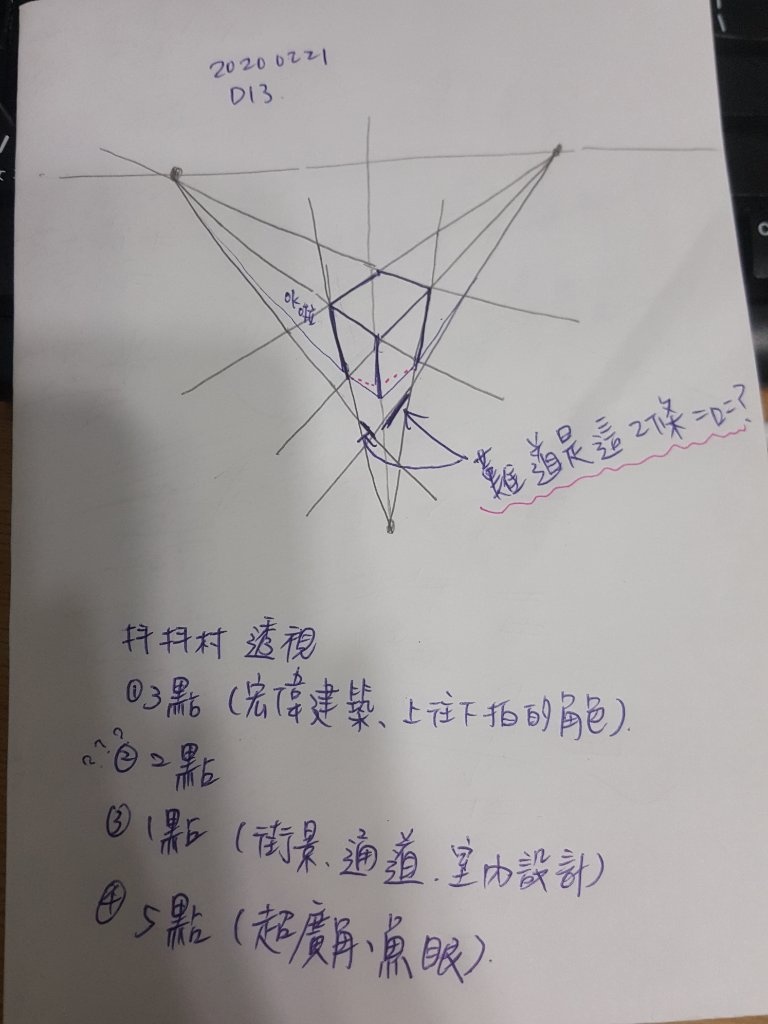 20200221
D13.
水啦
難道是這2條=口=?
抖抖村 透視
①3點(宏偉建築、上往下拍的角色).
??? ②2點
③1點(街景、通道.室內設計)
④5點(超廣角、魚眼).